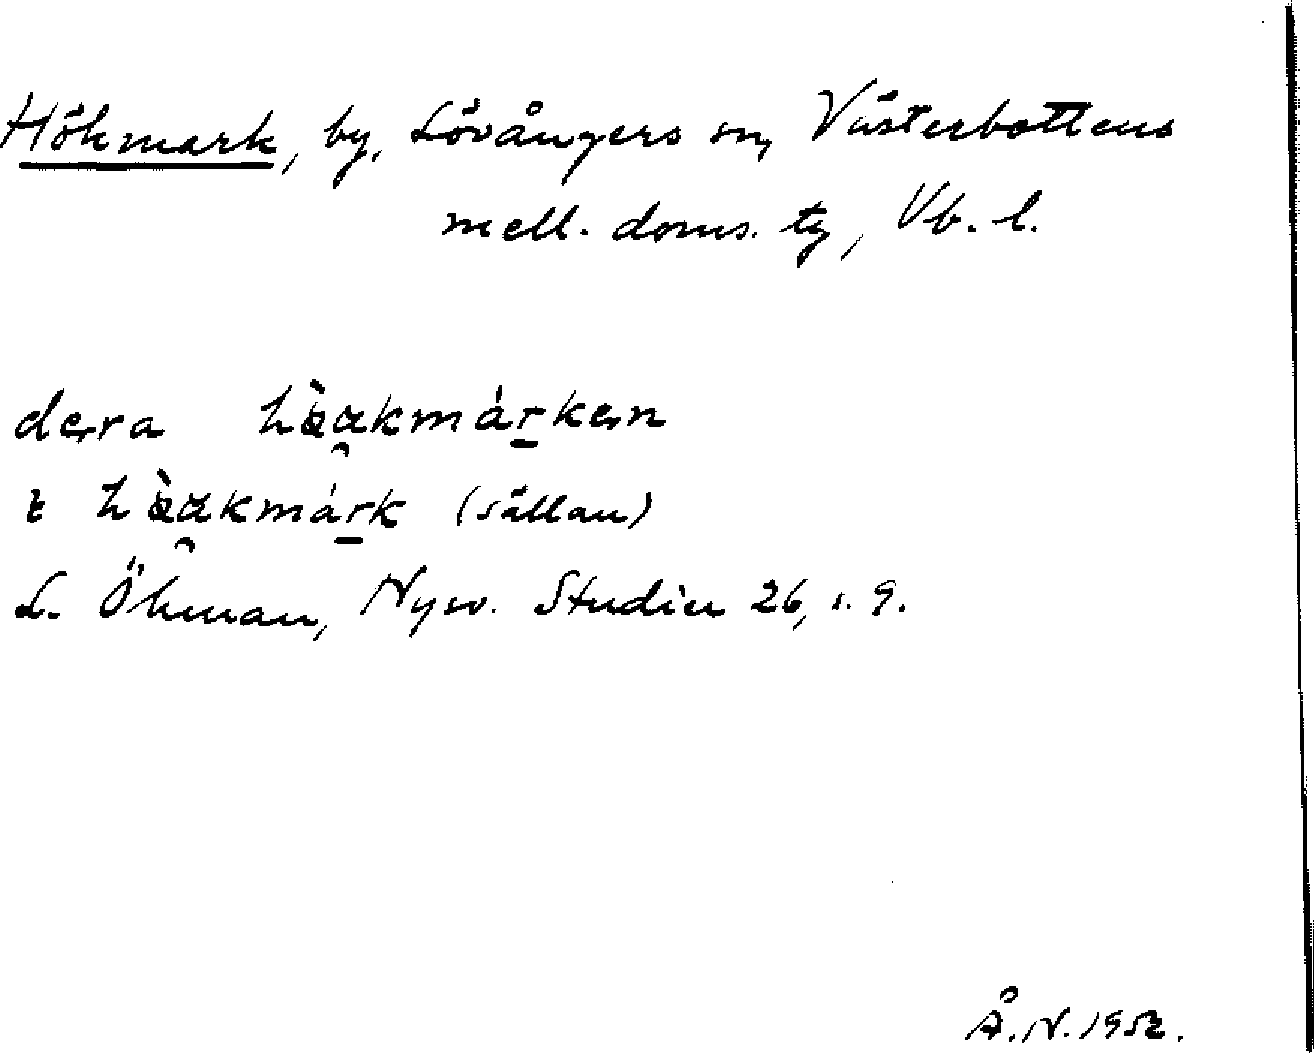 Hökmark, by, Lövångers sn, Västerbottens
mell. doms. tg, Vb. l.
dera hɵ̀ɑkmárken
t hɵ̀ɑkmárk (sällan)
L. Öhman, Nysv. Studier 26, s. 9.
Å. N. 1952.